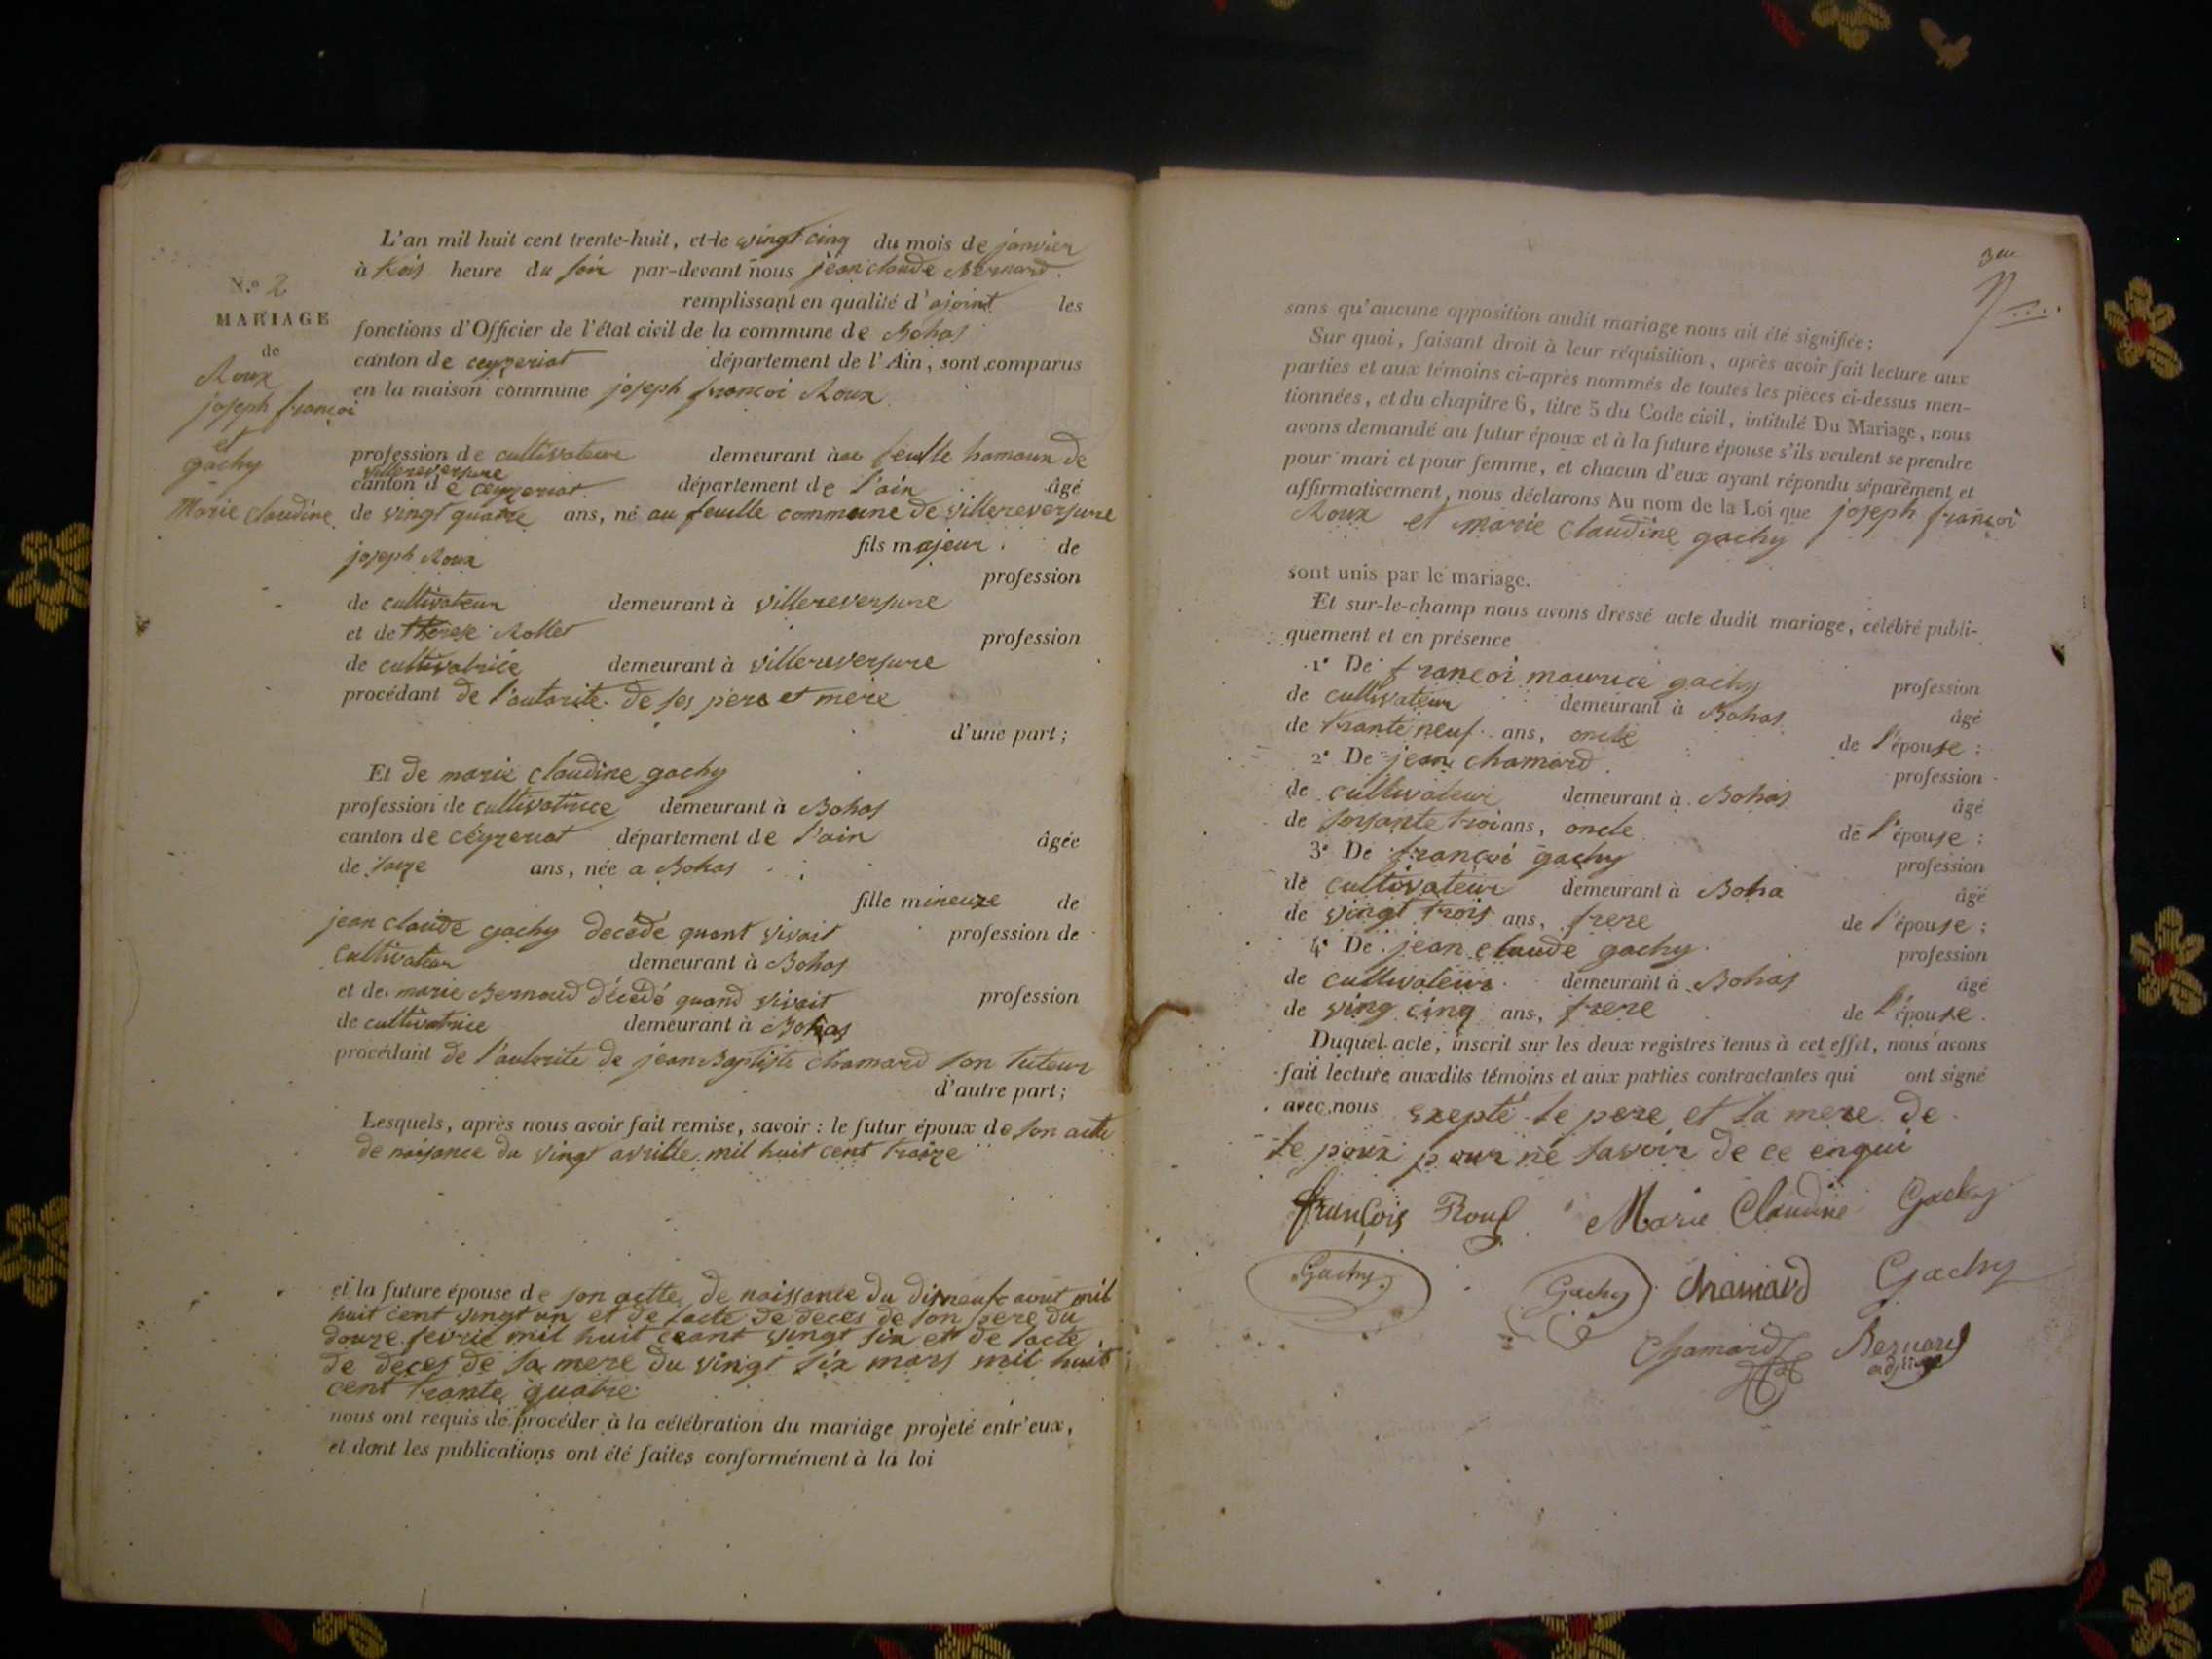 L'an mil huit cent trente-huit, et le vingt cinq du mois de janvier
à trois heure du soir par-devant nous jean claude Bernard
remplissant en qualité d'ajoint les
fonctions d'Officier de l'état civil de la commune de Bohas
canton de ceyzeriat département de l'Ain, sont comparus
en la maison commune joseph françoi Roux
N.° 2
MARIAGE
de
Roux
joseph françoi
et
gachy
Marie claudine
profession de cultivateur demeurant au feuille hamaux de
villereversure
canton de ceyzeriat département de l'ain âgé
de vingt quatre ans, né au feuille commune de villereversure
fils majeur de
joseph Roux profession
de cultivateur demeurant à villereversure
et de therese Rollet profession
de cultivatrice demeurant à villereversure
procédant de l'autorite de ses pere et mere
d'une part;
Et de marie claudine gachy
profession de cultivatrice demeurant à Bohas
canton de céyzeriat département de l'ain âgée
de saize ans, née a Bohas
fille mineuze de
jean claude gachy decédé quant vivait profession de
cultivateur demeurant à Bohas
et de marie Bernard décédé quand vivait profession
de cultivatrice demeurant à Bohas
procédant de l'autorite de jean Baptiste chamard son tuteur
d'autre part;
Lesquels, après nous avoir fait remise, savoir : le futur époux de son acte
de naisance du vingt avrille mil huit cent traize
et la future épouse de son actte de naissance du disneufe aout mil
huit cent vingt un et de lacte de deces de son pere du
douze fevrié mil huit ceant vingt six et de lacte
de deces de sa mere du vingt six mars mil huit
cent trante quatre
nous ont requis de procéder à la célébration du mariage projeté entr'eux,
et dont les publications ont été faites conformément à la loi
3me
sans qu'aucune opposition audit mariage nous ait été signifiée;
Sur quoi, faisant droit à leur réquisition, après avoir fait lecture aux
parties et aux témoins ci-après nommés de toutes les pièces ci-dessus men-
tionnées, et du chapitre 6, titre 5 du Code civil, intitulé Du Mariage, nous
avons demandé au futur époux et à la future épouse s'ils veulent se prendre
pour mari et pour femme, et chacun d'eux ayant répondu séparément et
affirmativement, nous déclarons Au nom de la Loi que joseph françoi
Roux et marie claudine gachy
sont unis par le mariage.
Et sur-le-champ nous avons dressé acte dudit mariage, célébré publi-
quement et en présence
1° De françoi maurice gachy profession
de cultivateur demeurant à Bohas âgé
de trante neuf ans, oncle de l'épouse :
2° De jean chamard profession
de cultivateur demeurant à Bohas âgé
de soisante troi ans, oncle de l'épouse :
3° De françoi gachy profession
de cultivateur demeurant à Boha âgé
de vingt trois ans, frere de l'épouse ;
4° De jean claude gachy profession
de cultivateur demeurant à Bohas âgé
de ving cinq ans, frere de l'épouse.
Duquel acte, inscrit sur les deux registres tenus à cet effet, nous avons
fait lecture auxdits témoins et aux parties contractantes qui ont signé
avec nous exepté le pere et la mere de
le poux pour ne savoir de ce enqui
françois Roux Marie Claudine Gachy
Gachy Gachy chamard Gachy
Chamard Bernard